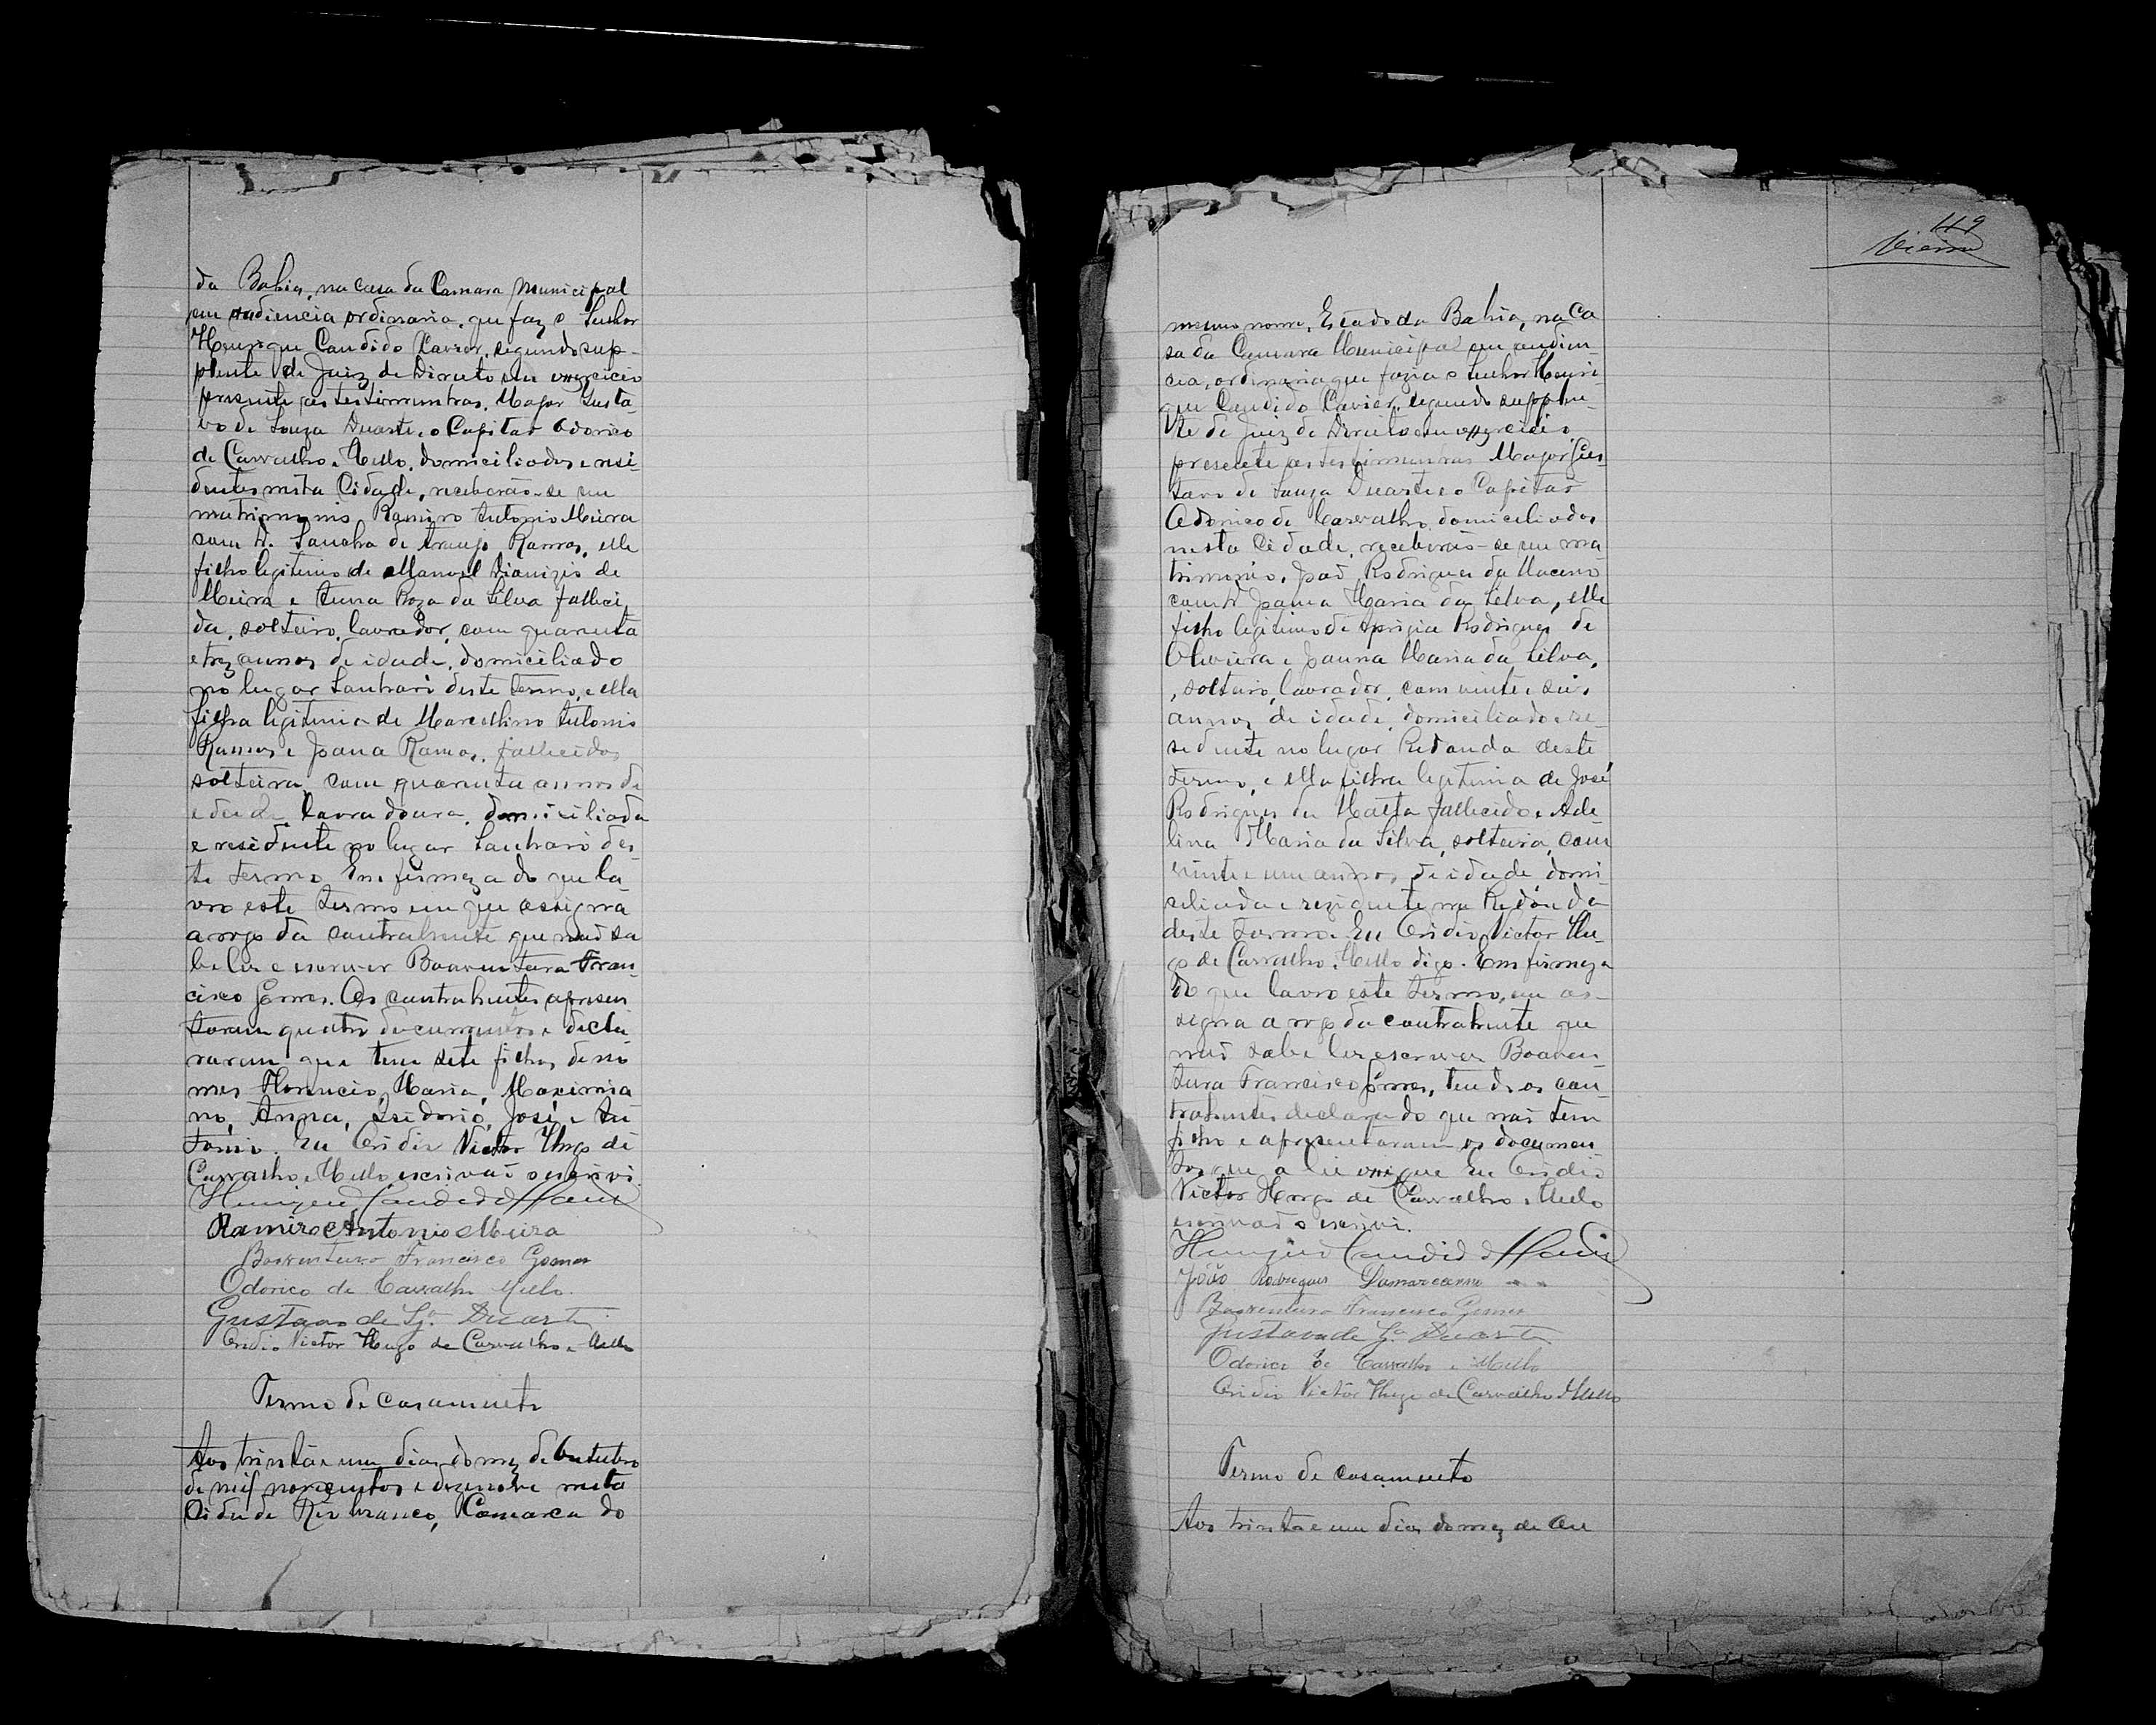 da Bahia, na casa da Camara Municipal
em audiencia ordinaria, que faz o Senhor
Henrique Candido Xavier, segundo sup-
plente de Juiz de Direito em exercicio
presente as testimunhas, Major Gusta-
vo de Souza Duarte, o Capitão Odorico
de Carvalho e Mello, domiciliados e resi
dentes nesta Cidade, receberão-se em
matrimonio Ramiro Antonio Meira
com D. Sancha de Araujo Ramos, elle
filho legitimo de Manoel Dionizio de
Meira e Anna Roza da Silva falleci
da, solteiro, lavrador, com quarenta
e trez annos de idade, domiciliado
no lugar deste termo, e ella
filha legitima de Marcellino Antonio
Ramos e Joana Ramos, fallecidos
solteira, com quarenta annos de
edade, lavradoura, domiciliada
e residente no lugar des
te termo. Em firmeza do que la-
vro este termo em que assigna
a rogo da contrahente que não sa
be ler e escrever Boaventura Fran-
cisco Gomes. Os contrahentes apresen
taram quatro documentos e decla
raram que tem sete filhos de no
mes Florencio, Maria, Maximia
no, Anna, Izidorio, José e An
tonio. Eu Ovidio Victor Hugo de
Carvalho e Mello, escrivão o escrivi.
Henrique Candido Xavier
Ramiro Antonio Meira
Boaventura Francisco Gomes
Odorico de Carvalho Mello.
Gustavo de Sza. Duarte
Ovidio Victor Hugo de Carvalho e Mello
Termo de Casamento
Aos trinta e um dias do mez de Outubro
de mil novecentos e dezenove nesta
Cidade Rio Branco, Comarca do
119
Vieira
mesmo nome, Estado da Bahia, na Ca
sa da Camara Municipal em audien-
cia, ordinaria que fazia o Senhor Henri-
que Candido Xavier, segundo supplen-
te de Juiz de Direito em exercicio
presente as testimunhas Major Gus-
tavo de Souza Duarte e o Capitão
Odorico de Carvalho, domiciliados
nesta Cidade, receberão-se em ma
trimonio, João Rodrigues da
com D. Joana Maria da Silva, elle
filho legitimo de Rodrigues de
Oliveira e Joanna Maria da Silva,
, solteiro, lavrador, com vinte e seis
annos de idade, domiciliado e re-
sidente no lugar Redonda deste
termo, e ella filha legitima de José
Rodrigues da Matta fallecido e Ade-
lina Maria da Silva, solteira, com
vinte e um annos de idade, domi-
ciliada e rezidente na Redonda
deste termo. Eu Ovidio Victor Hu-
go de Carvalho e Mello digo. Em firmeza
do que lavro este termo, em as-
signa a rogo da contrahente que
não sabe ler escrever Boaven
tura Francisco Gomes, tendo os con
trahentes declarando que não tem
filho e apresentaram os documen
tos que a lei exige Eu Ovidio
Victor Hugo de Carvalho e Mello
escrivão o escrivi.
Henrique Candido Xavier
João Rodrigues Damarceno
Boaventura Francisco Gomes
Gustavo de Sza Duarte
Odorico de Carvalho e Mello
Ovidio Victor Hugo de Carvalho e Mello
Termo de casamento
Aos trinta e um dias do mez de Ou